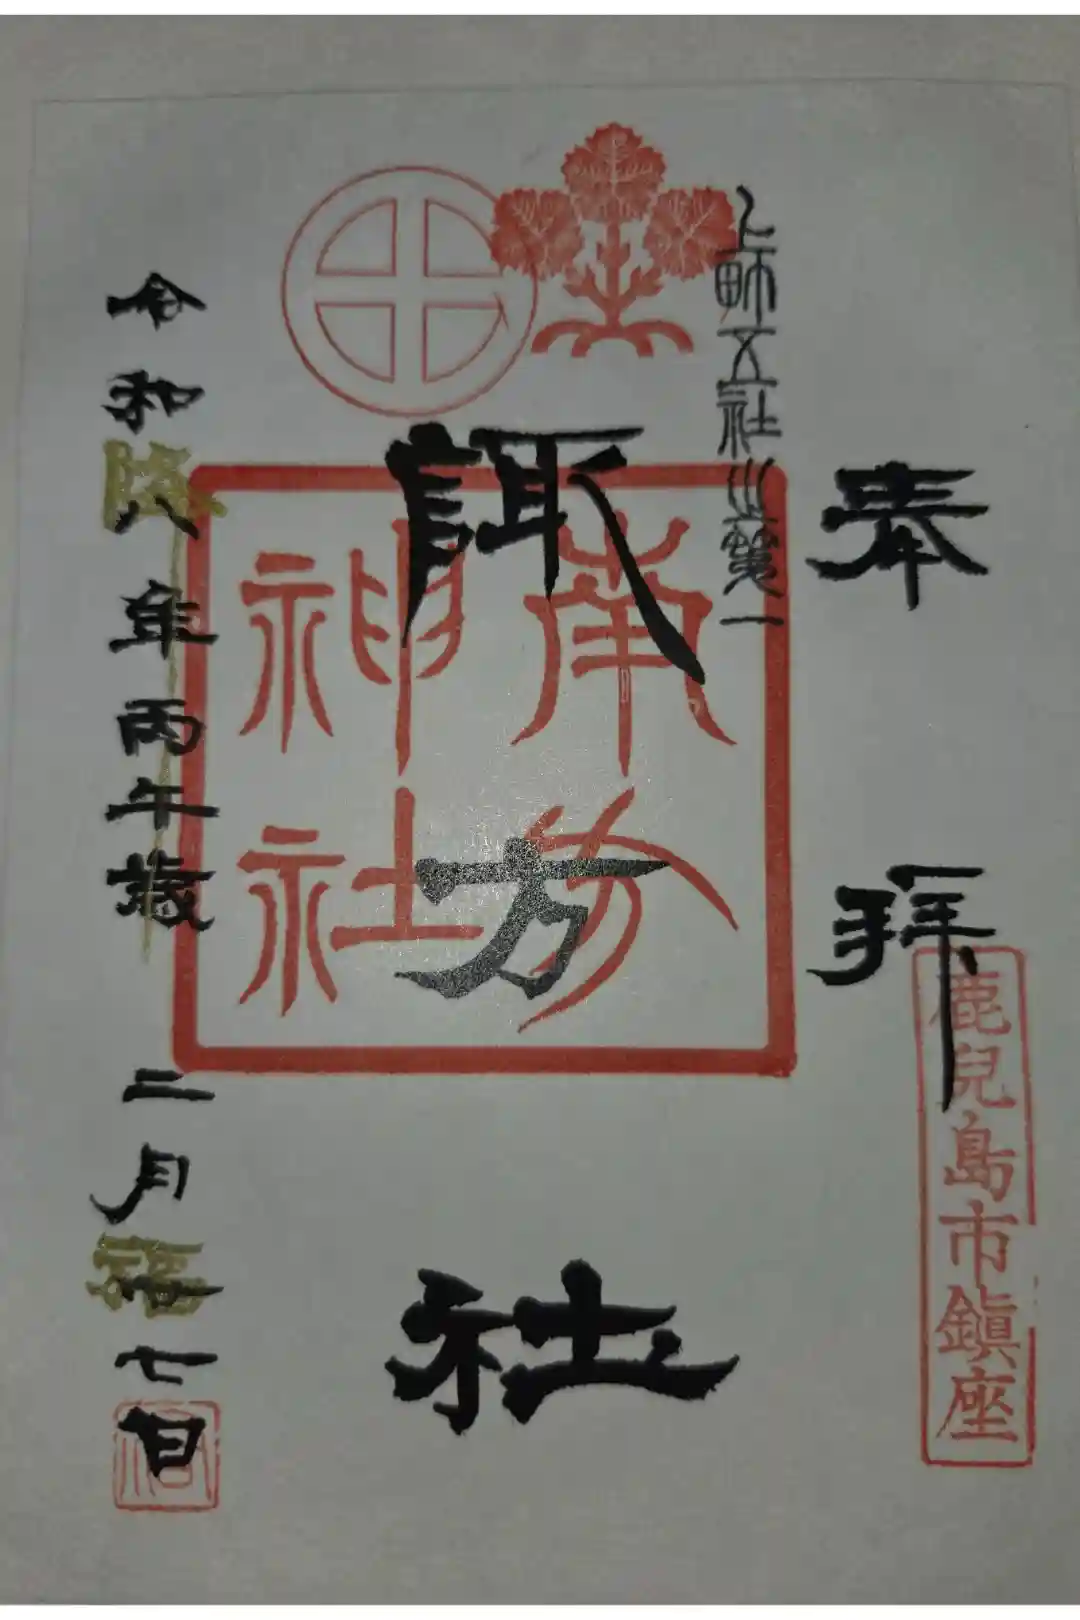 奉拝
鹿兒島市鎭座
上町五社之第一
諏方社
南方
神社
令和八年丙午歳 二月十七日